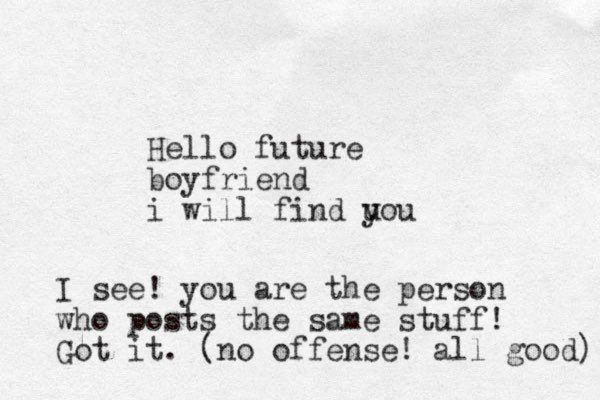 Hello future
boyfriend
i will find you
I see! you are the person
who posts the same stuff!
Got it. (no offense! all good)